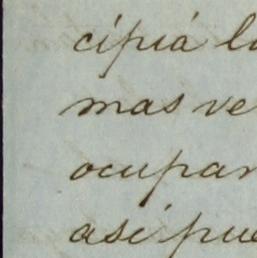 cipiá l
mas ve
ocupar
asi pue